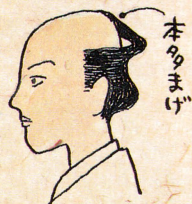 本多まげ